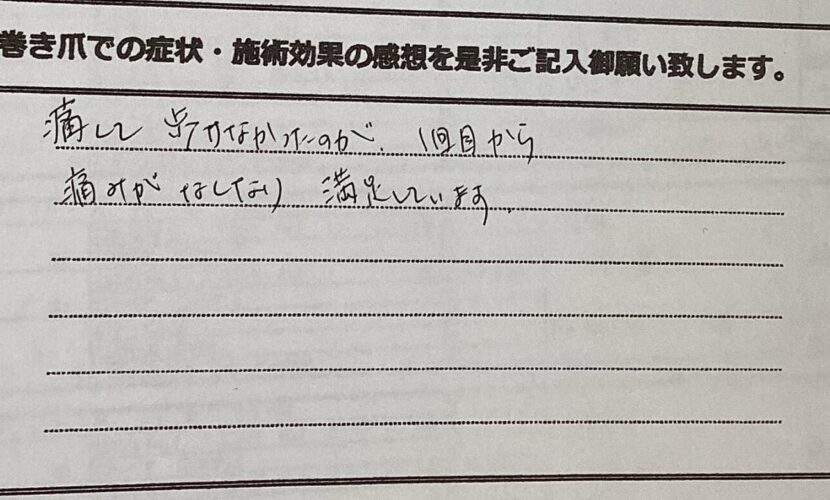 巻き爪での症状・施術効果の感想を是非ご記入御願い致します。
痛くて歩けなかったのが、1回目から
痛みがなくなり 満足しています。